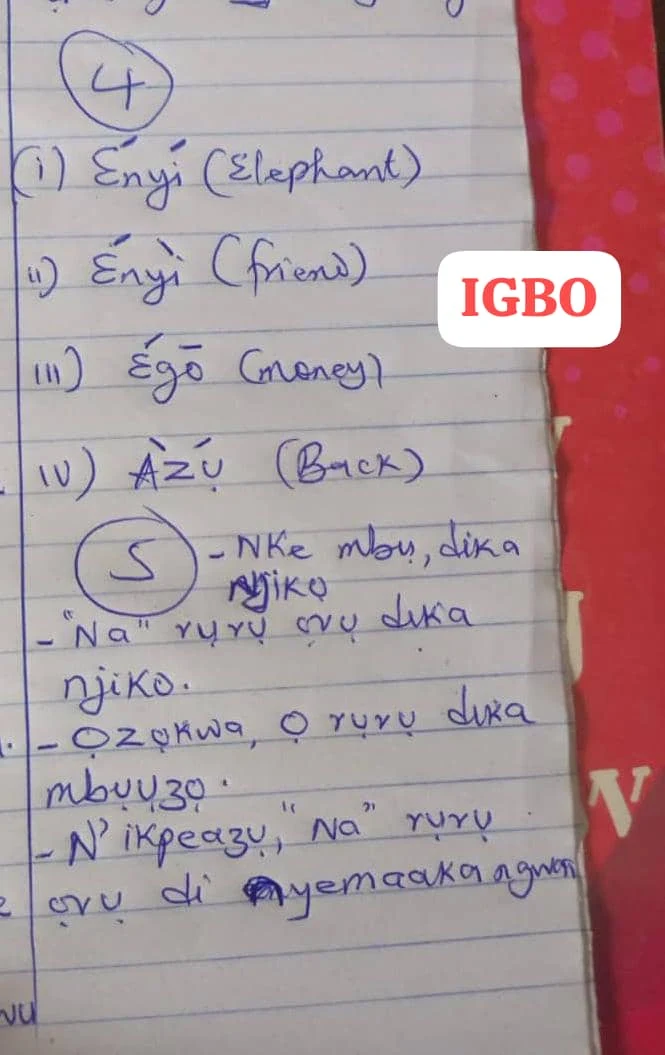 4
(i) Ényí (Elephant)
ii) Ényì (friend)
IGBO
iii) Égō (money)
iv) Àzụ́ (Back)
5 - Nke mbụ, dika
njikọ
- "Na" rụrụ ọrụ dika
njiko.
- Ọzọkwa, Ọ rụrụ dika
mbụụzọ.
- N' ikpeazụ, "Na" rụrụ
ọrụ di nyemaaka ngwa